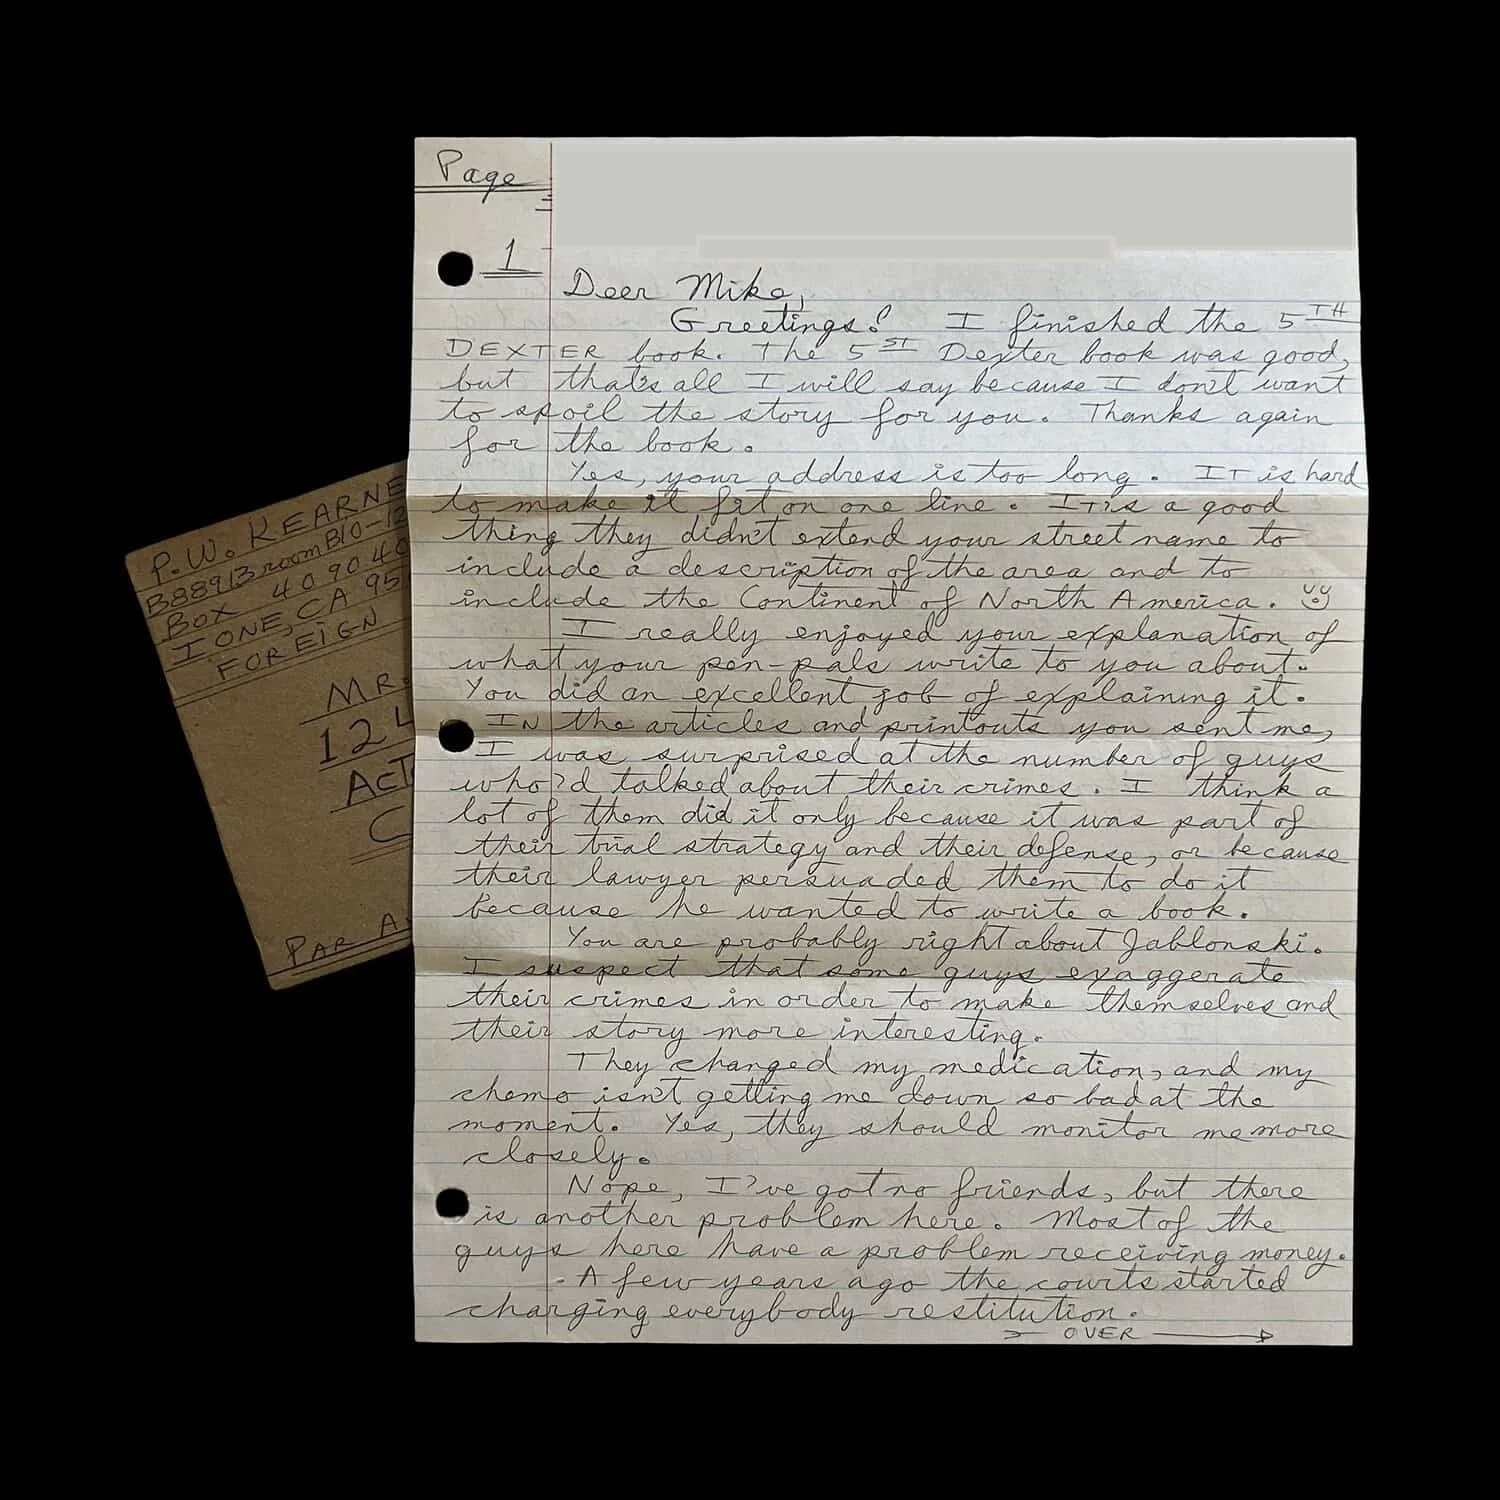 P.W. KEARNE
B88913 room B10-12
BOX 409040
IONE, CA 95
FOREIGN
MR.
124
ACT
C
PAR A
Page
1
Deer Mike,
Greetings! I finished the 5TH
DEXTER book. The 5ST Dexter book was good,
but that's all I will say because I don't want
to spoil the story for you. Thanks again
for the book.
Yes, your address is too long. IT is hard
to make it fit on one line. IT is a good
thing they didn't extend your street name to
include a description of the area and to
include the Continent of North America.
I really enjoyed your explanation of
what your pen-pals write to you about.
You did an excellent job of explaining it.
IN the articles and printouts you sent me,
I was surprised at the number of guys
who'd talked about their crimes. I think a
lot of them did it only because it was part of
their trial strategy and their defense, or because
their lawyer persuaded them to do it
because he wanted to write a book.
You are probably right about Jablonski.
I suspect that some guys exaggerate
their crimes in order to make themselves and
their story more interesting.
They changed my medication, and my
chemo isn't getting me down so bad at the
moment. Yes, they should monitor me more
closely.
Nope, I've got no friends, but there
is another problem here. Most of the
guys here have a problem receiving money.
- A few years ago the courts started
charging everybody restitution.
OVER